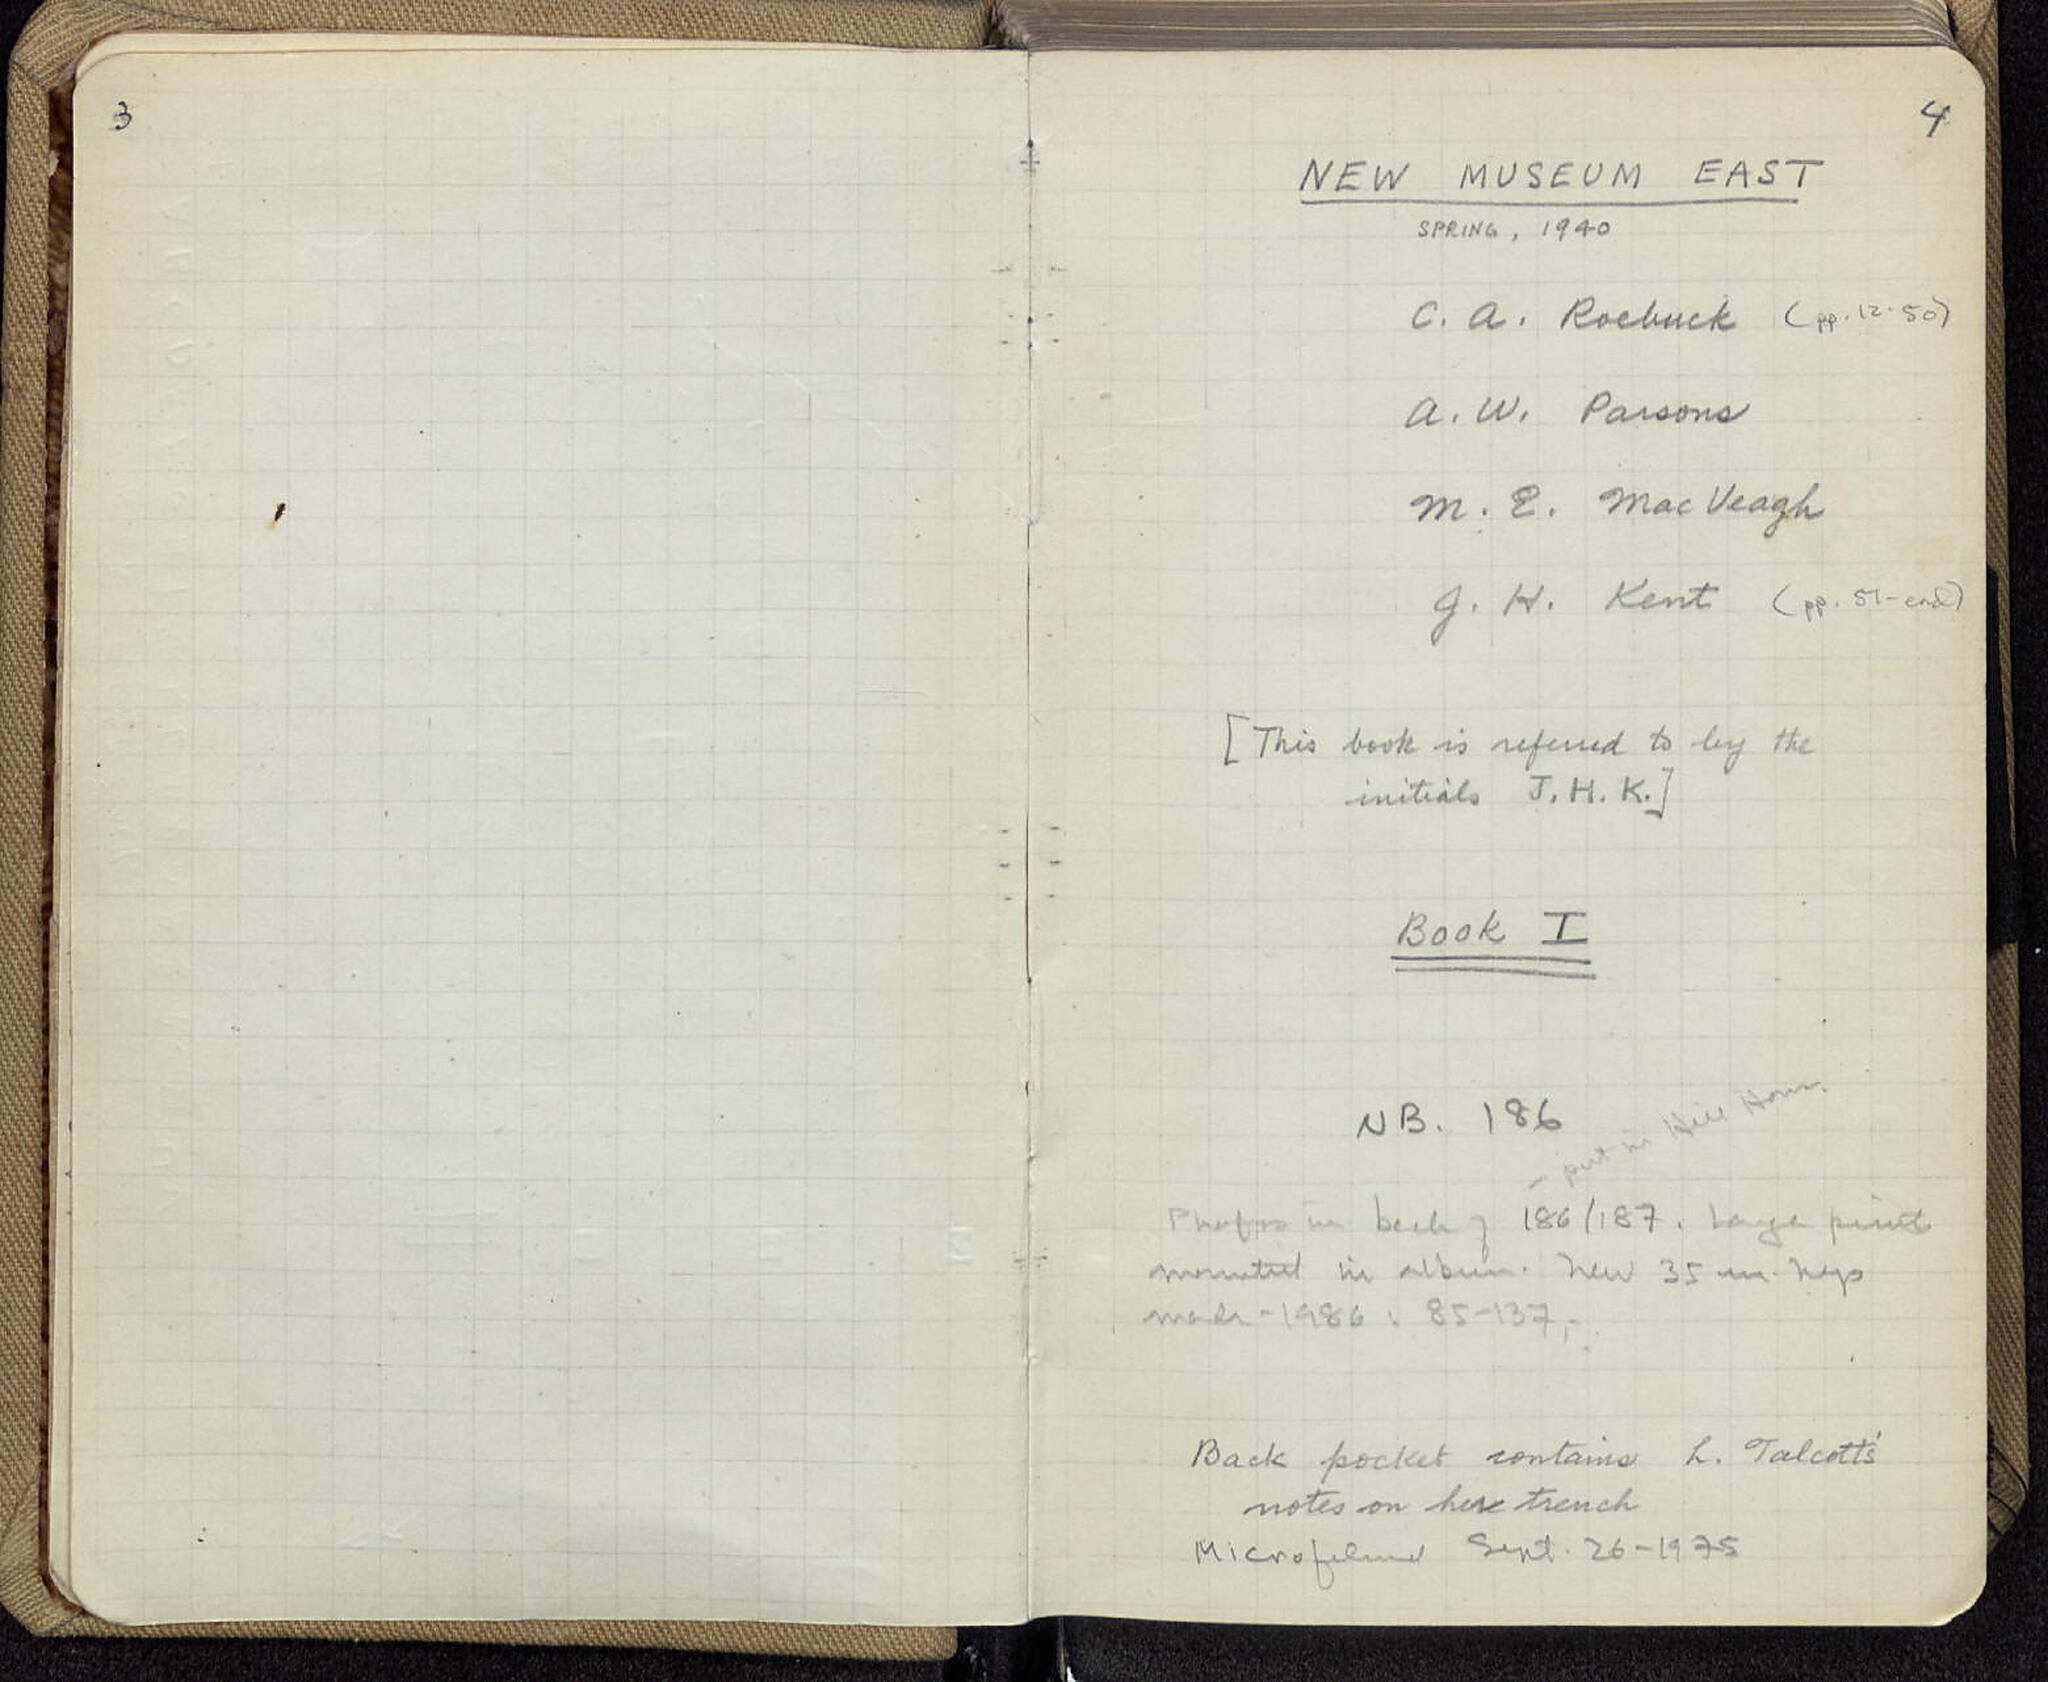 3
4
NEW MUSEUM EAST
SPRING, 1940
C. A. Roebuck (pp. 12-50)
A. W. Parsons
M. E. MacVeagh
J. H. Kent (pp. 51-end)
[This book is referred to by the
initials J.H.K.]
Book I
NB. 186
- put in Hill House
Photos in back of 186/187. Large prints
mounted in album. New 35 negs
made-1986: 85-137,-
Back pocket contains L. Talcott's
notes on her trench
Microfilmed Sept. 26-1975